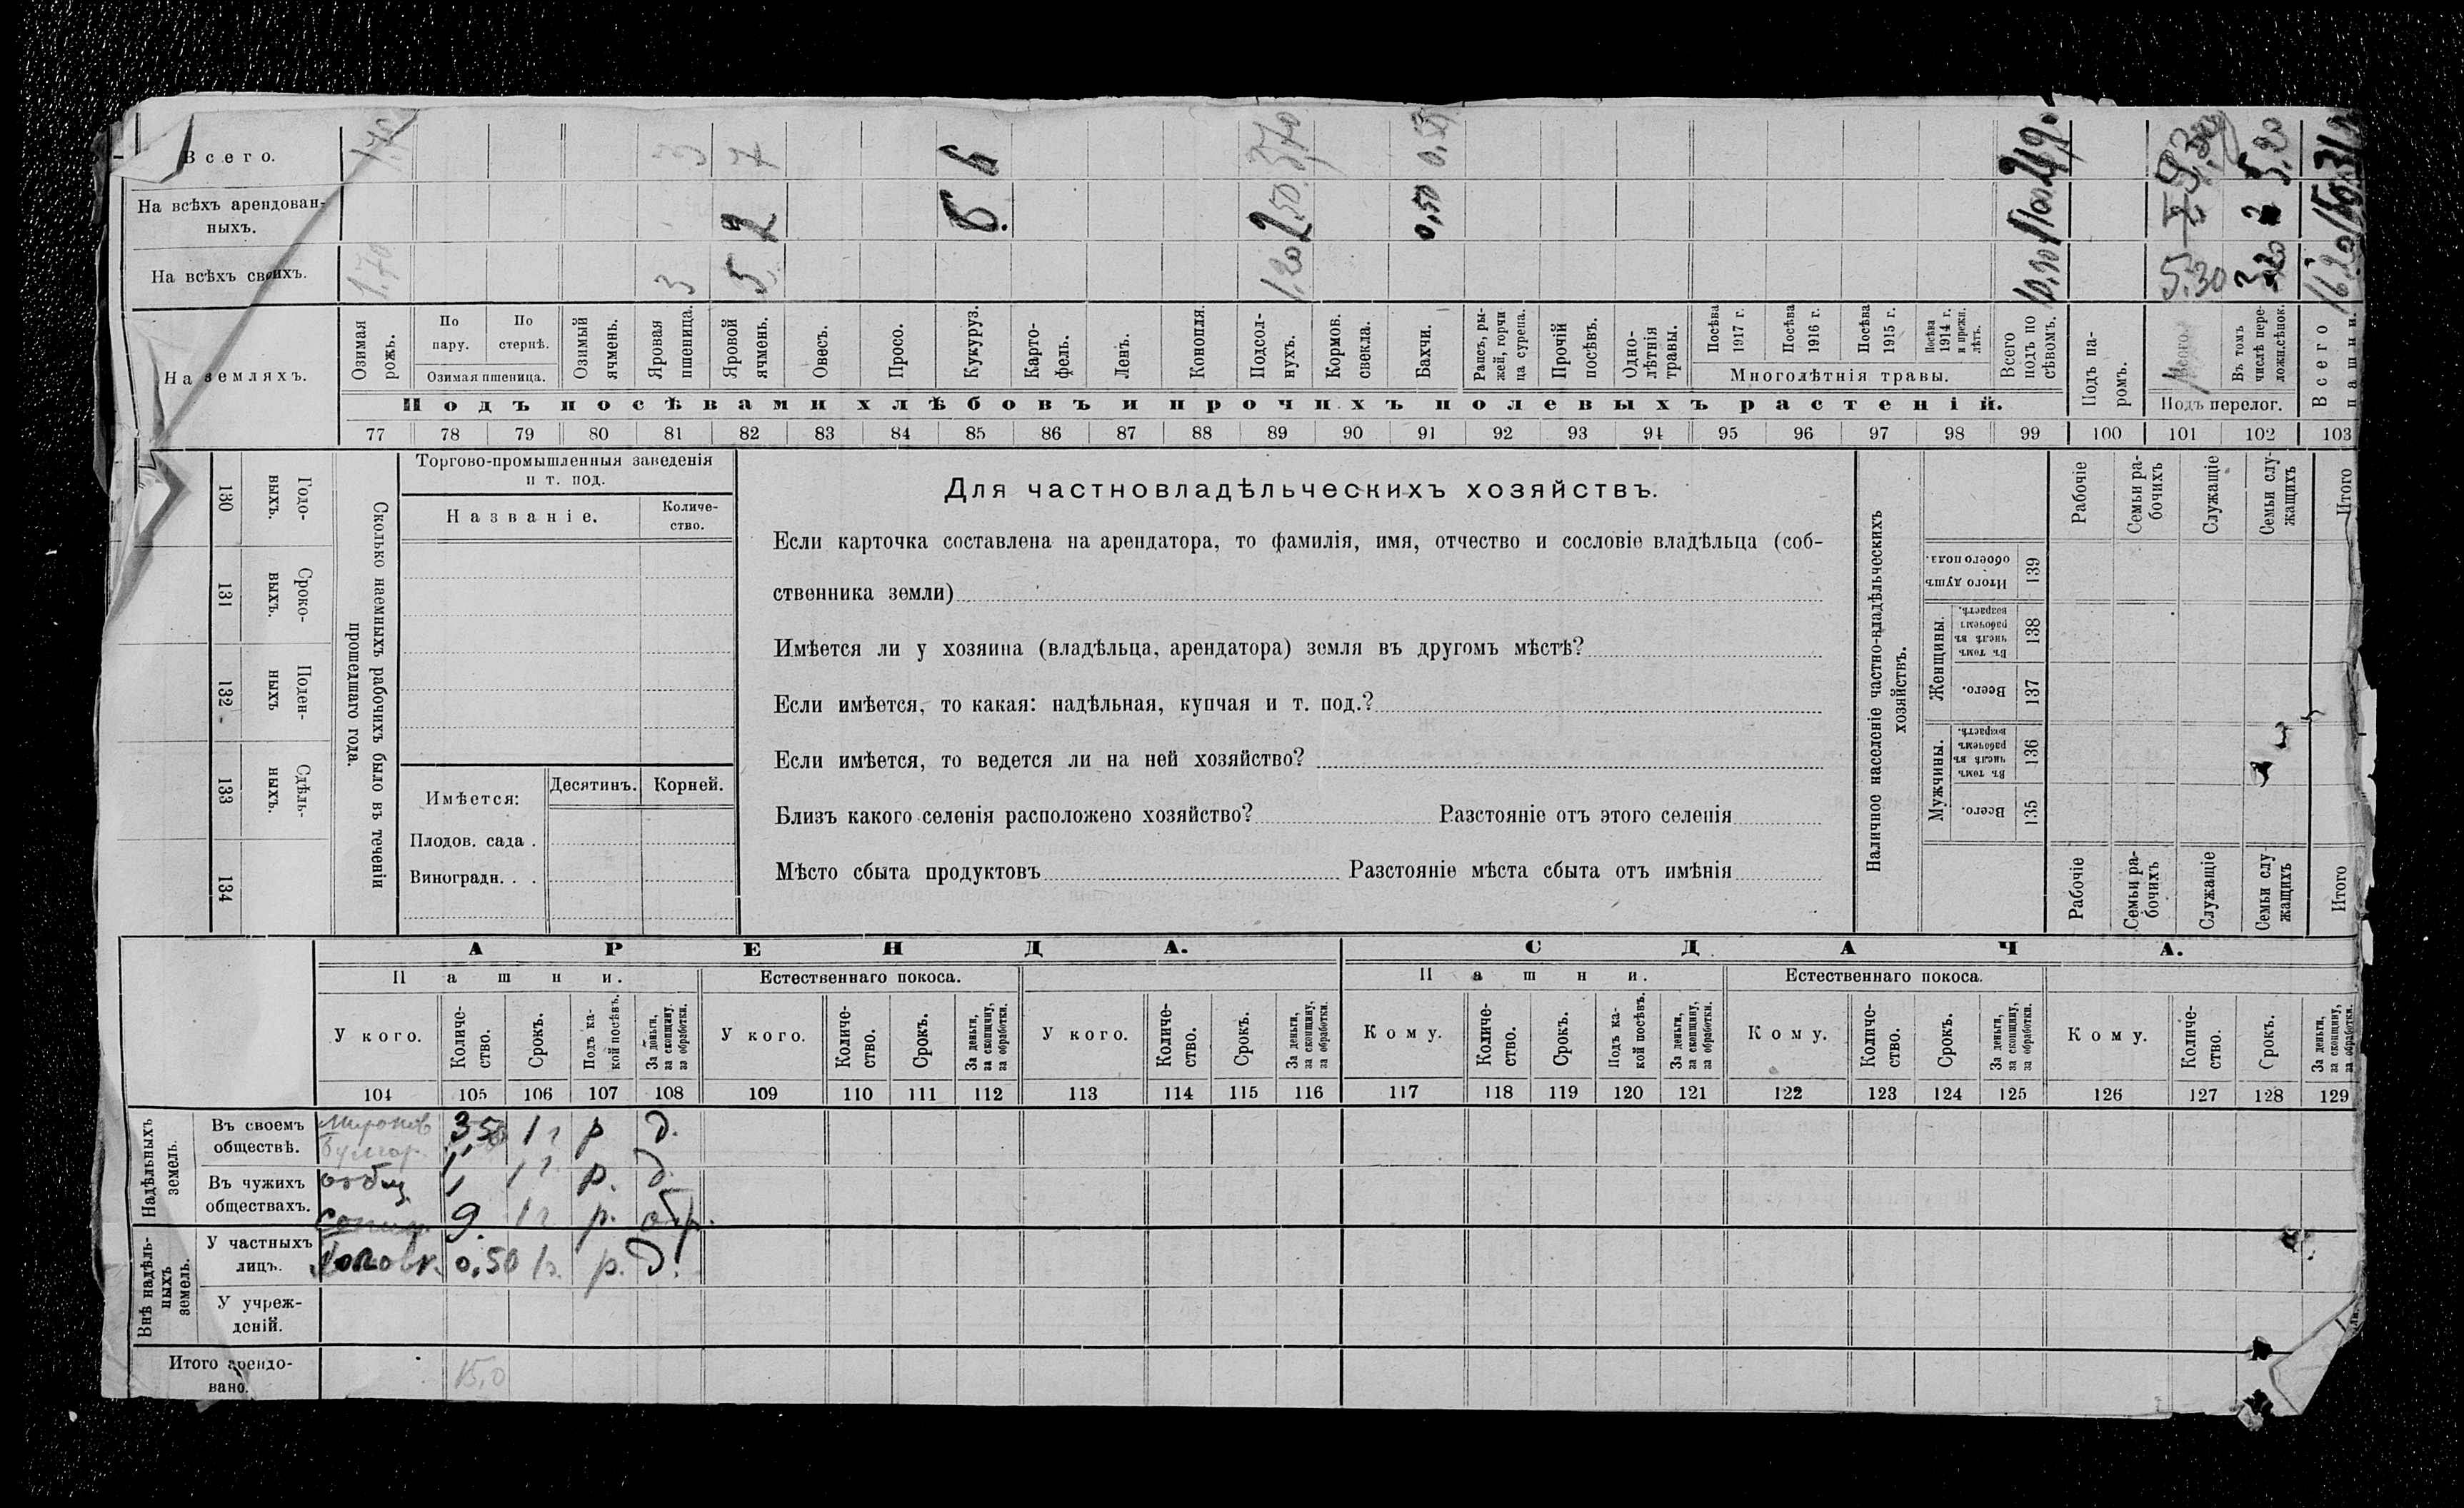 Всего. 1.70 3 7 6 3,70 0,50
На всѣхъ арендован-
ныхъ. 2 6. 2,50 0,50 2
На всѣхъ своихъ. 1.70 3 5 1.20 5.30 16.20
На земляхъ.
Озимая рожь.
По пару.
По стернѣ.
Озимая пшеница.
Озимый ячмень.
Яровая пшеница.
Яровой ячмень.
Овесъ.
Просо.
Кукуруз.
Карто-
фель.
Ленъ.
Конопля.
Подсол-
нухъ.
Кормов.
свекла.
Бахчи.
Рапсъ, ры-
жей, горчи
ца сурепа.
Прочій
посѣвъ.
Одно-
лѣтнія
травы.
Посѣва
1917 г.
Посѣва
1916 г.
Посѣва
1915 г.
Посѣва
1914 г.
и прежн.
лѣтъ.
Многолѣтнія травы.
Всего
подъ по
сѣвомъ.
Подъ па-
ромъ.
Всего
Въ томъ
числѣ пере-
ложн.сѣнок.
Подъ перелог.
Всего
пашни.
Подъ посѣвами хлѣбовъ и прочихъ полевыхъ растеній.
77 78 79 80 81 82 83 84 85 86 87 88 89 90 91 92 93 94 95 96 97 98 99 100 101 102 103
130 Годо-
выхъ.
131 Сроко-
выхъ.
132 Поден-
ныхъ
133 Сдѣль-
ныхъ.
134
Сколько наемныхъ рабочихъ было въ теченіи
прошедшаго года.
Торгово-промышленныя заведенія
и т. под.
Названіе.
Количе-
ство.
Имѣется:
Десятинъ.
Корней.
Плодов. сада .
Виноградн. . .
Для частновладѣльческихъ хозяйствъ.
Если карточка составлена на арендатора, то фамилія, имя, отчество и сословіе владѣльца (соб-
ственника земли)
Имѣется ли у хозяина (владѣльца, арендатора) земля въ другомъ мѣстѣ?
Если имѣется, то какая: надѣльная, купчая и т. под.?
Если имѣется, то ведется ли на ней хозяйство?
Близъ какого селенія расположено хозяйство? Разстояніе отъ этого селенія
Мѣсто сбыта продуктовъ Разстояніе мѣста сбыта отъ имѣнія
Наличное населеніе частно-владѣльческихъ
хозяйствъ.
Рабочіе
Семьи ра-
бочихъ
Служащіе
Семьи слу-
жащихъ
Итого
Итого душъ
обоего пола.
139
Женщины.
Въ томъ
числѣ въ
рабочемъ
возрастѣ.
138
Всего.
137
Мужчины.
Въ томъ
числѣ въ
рабочемъ
возрастѣ.
136
Всего.
135
Рабочіе
Семьи ра-
бочихъ
Служащіе
Семьи слу
жащихъ
Итого
АРЕНДА. СДАЧА.
Пашни. Естественнаго покоса. Пашни. Естественнаго покоса.
У кого.
Количе-
ство.
Срокъ.
Подъ ка-
кой посѣвъ.
За деньги,
за скопщину,
за обработки.
У кого.
Количе-
ство.
Срокъ.
За деньги,
за скопщину,
за обработки.
У кого.
Количе-
ство.
Срокъ.
За деньги,
за скопщину,
за обработки.
Кому.
Количе-
ство.
Срокъ.
Подъ ка-
кой посѣвъ.
За деньги,
за скопщину,
за обработки.
Кому.
Количе-
ство.
Срокъ.
За деньги,
за скопщину,
за обработки.
Кому.
Количе-
ство.
Срокъ.
За деньги,
за скопщину,
за обработки.
104 105 106 107 108 109 110 111 112 113 114 115 116 117 118 119 120 121 122 123 124 125 126 127 128 129
Надѣльныхъ
земель.
Въ своемъ
обществѣ.
Миронов 3,50 1 г р д.
Въ чужихъ
обществахъ.
1 1 г р. д.
9. 1 г р. обр.
Внѣ надѣль-
ныхъ
земель.
У частныхъ
лицъ.
0,50 1 г. р. д.
У учреж-
деній.
Итого арендо-
вано. 15,0